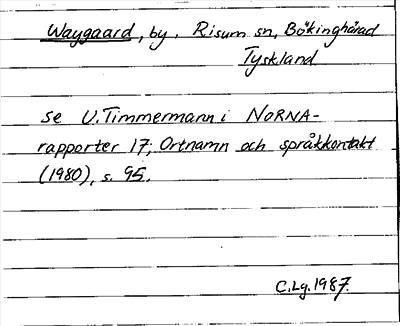 Waygaard, by. Risum sn, Bökinghärad
Tyskland
se U. Timmermann i NORNA-
rapporter 17; Ortnamn och språkkontakt
(1980), s. 95.
C.Lg. 1987.